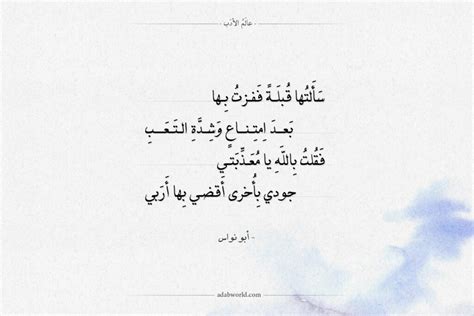 - عالَمُ الأدَب -
سَأَلتُها قُبلَةً فَفزتُ بِها
بَعدَ اِمتِناعٍ وَشِدَّةِ التَعَبِ
فَقُلتُ بِاللَهِ يا مُعَذِّبَتي
جودي بِأُخرى أَقضي بِها أَرَبي
- أبو نواس
adabworld.com